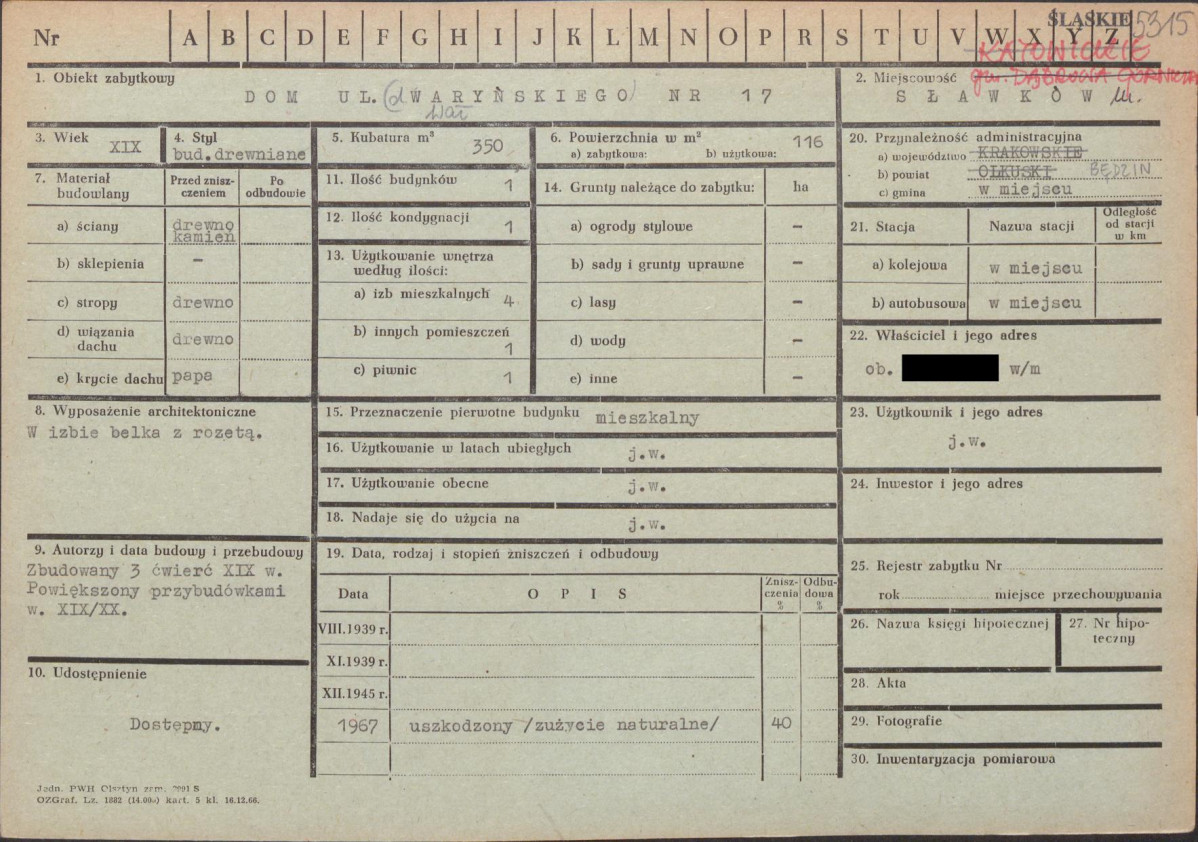 Nr A B C D E F G H I J K L M N O P R S T U V W X Y Z
ŚLĄSKIE 5315
KATOWICKIE
gm. DĄBROWA GÓRNICZA
1. Obiekt zabytkowy
DOM UL. (d WARYŃSKIEGO) NR 17
Wał
2. Miejscowość
SŁAWKÓW m.
3. Wiek XIX
4. Styl
bud.drewniane
5. Kubatura m³ 350
6. Powierzchnia w m² 116
a) zabytkowa: b) użytkowa:
7. Materiał budowlany
Przed zniszczeniem
Po odbudowie
a) ściany drewno
kamień
b) sklepienia –
c) stropy drewno
d) wiązania dachu drewno
e) krycie dachu papa
11. Ilość budynków 1
12. Ilość kondygnacji 1
13. Użytkowanie wnętrza
według ilości:
a) izb mieszkalnych 4
b) innych pomieszczeń 1
c) piwnic 1
14. Grunty należące do zabytku: ha
a) ogrody stylowe –
b) sady i grunty uprawne –
c) lasy –
d) wody –
e) inne –
20. Przynależność administracyjna
a) województwo KRAKOWSKIE
b) powiat OLKUSKI BĘDZIN
c) gmina w miejscu
21. Stacja Nazwa stacji Odległość
od stacji
w km
a) kolejowa w miejscu
b) autobusowa w miejscu
22. Właściciel i jego adres
ob. w/m
8. Wyposażenie architektoniczne
W izbie belka z rozetą.
15. Przeznaczenie pierwotne budynku mieszkalny
16. Użytkowanie w latach ubiegłych j.w.
17. Użytkowanie obecne j.w.
18. Nadaje się do użycia na j.w.
23. Użytkownik i jego adres
j.w.
24. Inwestor i jego adres
9. Autorzy i data budowy i przebudowy
Zbudowany 3 ćwierć XIX w.
Powiększony przybudówkami
w. XIX/XX.
10. Udostępnienie
Dostępny.
19. Data, rodzaj i stopień żniszczeń i odbudowy
Data OPIS Zniszczenia % Odbudowa %
VIII.1939 r.
XI.1939 r.
XII.1945 r.
1967 uszkodzony /zużycie naturalne/ 40
25. Rejestr zabytku Nr
rok miejsce przechowywania
26. Nazwa księgi hipotecznej
27. Nr hipoteczny
28. Akta
29. Fotografie
30. Inwentaryzacja pomiarowa
Jedn. PWH Olsztyn zam.
OZGraf. Lz. 1882 (14.000) kart. 5 kl. 16.12.66.